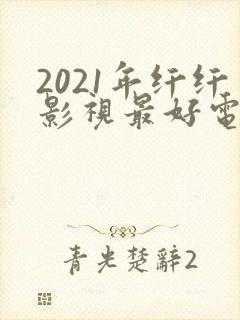 2021年纤纤
影視最好電
青光楚辭2